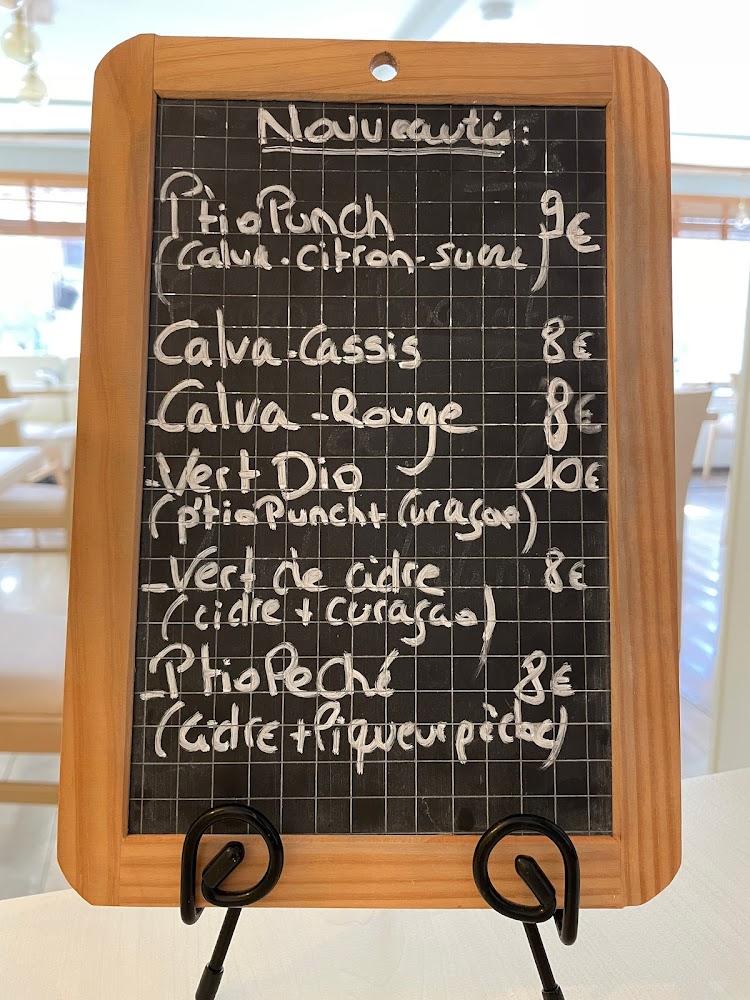 Nouveautés:
P'tio Punch 9€
(Calva-citron-sucre)
Calva-Cassis 8€
Calva-Rouge 8€
-Vert Dio 10€
(p'tio Punch+ Curaçao)
-Vert de cidre 8€
(cidre + curaçao)
-P'tio Peché 8€
(cidre + liqueur pèche)